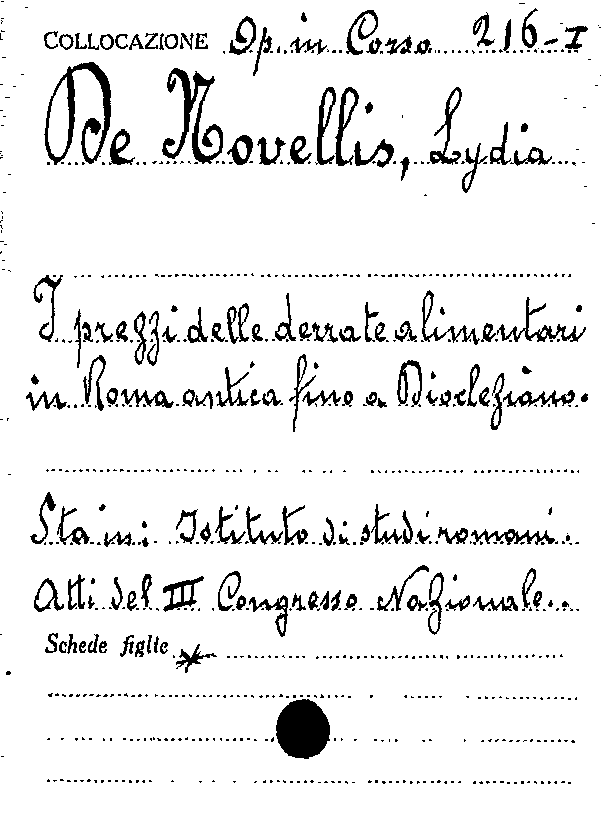 COLLOCAZIONE Op. in Corso 216-I
De Novellis, Lydia
I prezzi delle derrate alimentari
in Roma antica fino a Diocleziano.
Sta in: Istituto di studi romani.
Atti del III Congresso Nazionale..
Schede figlie *